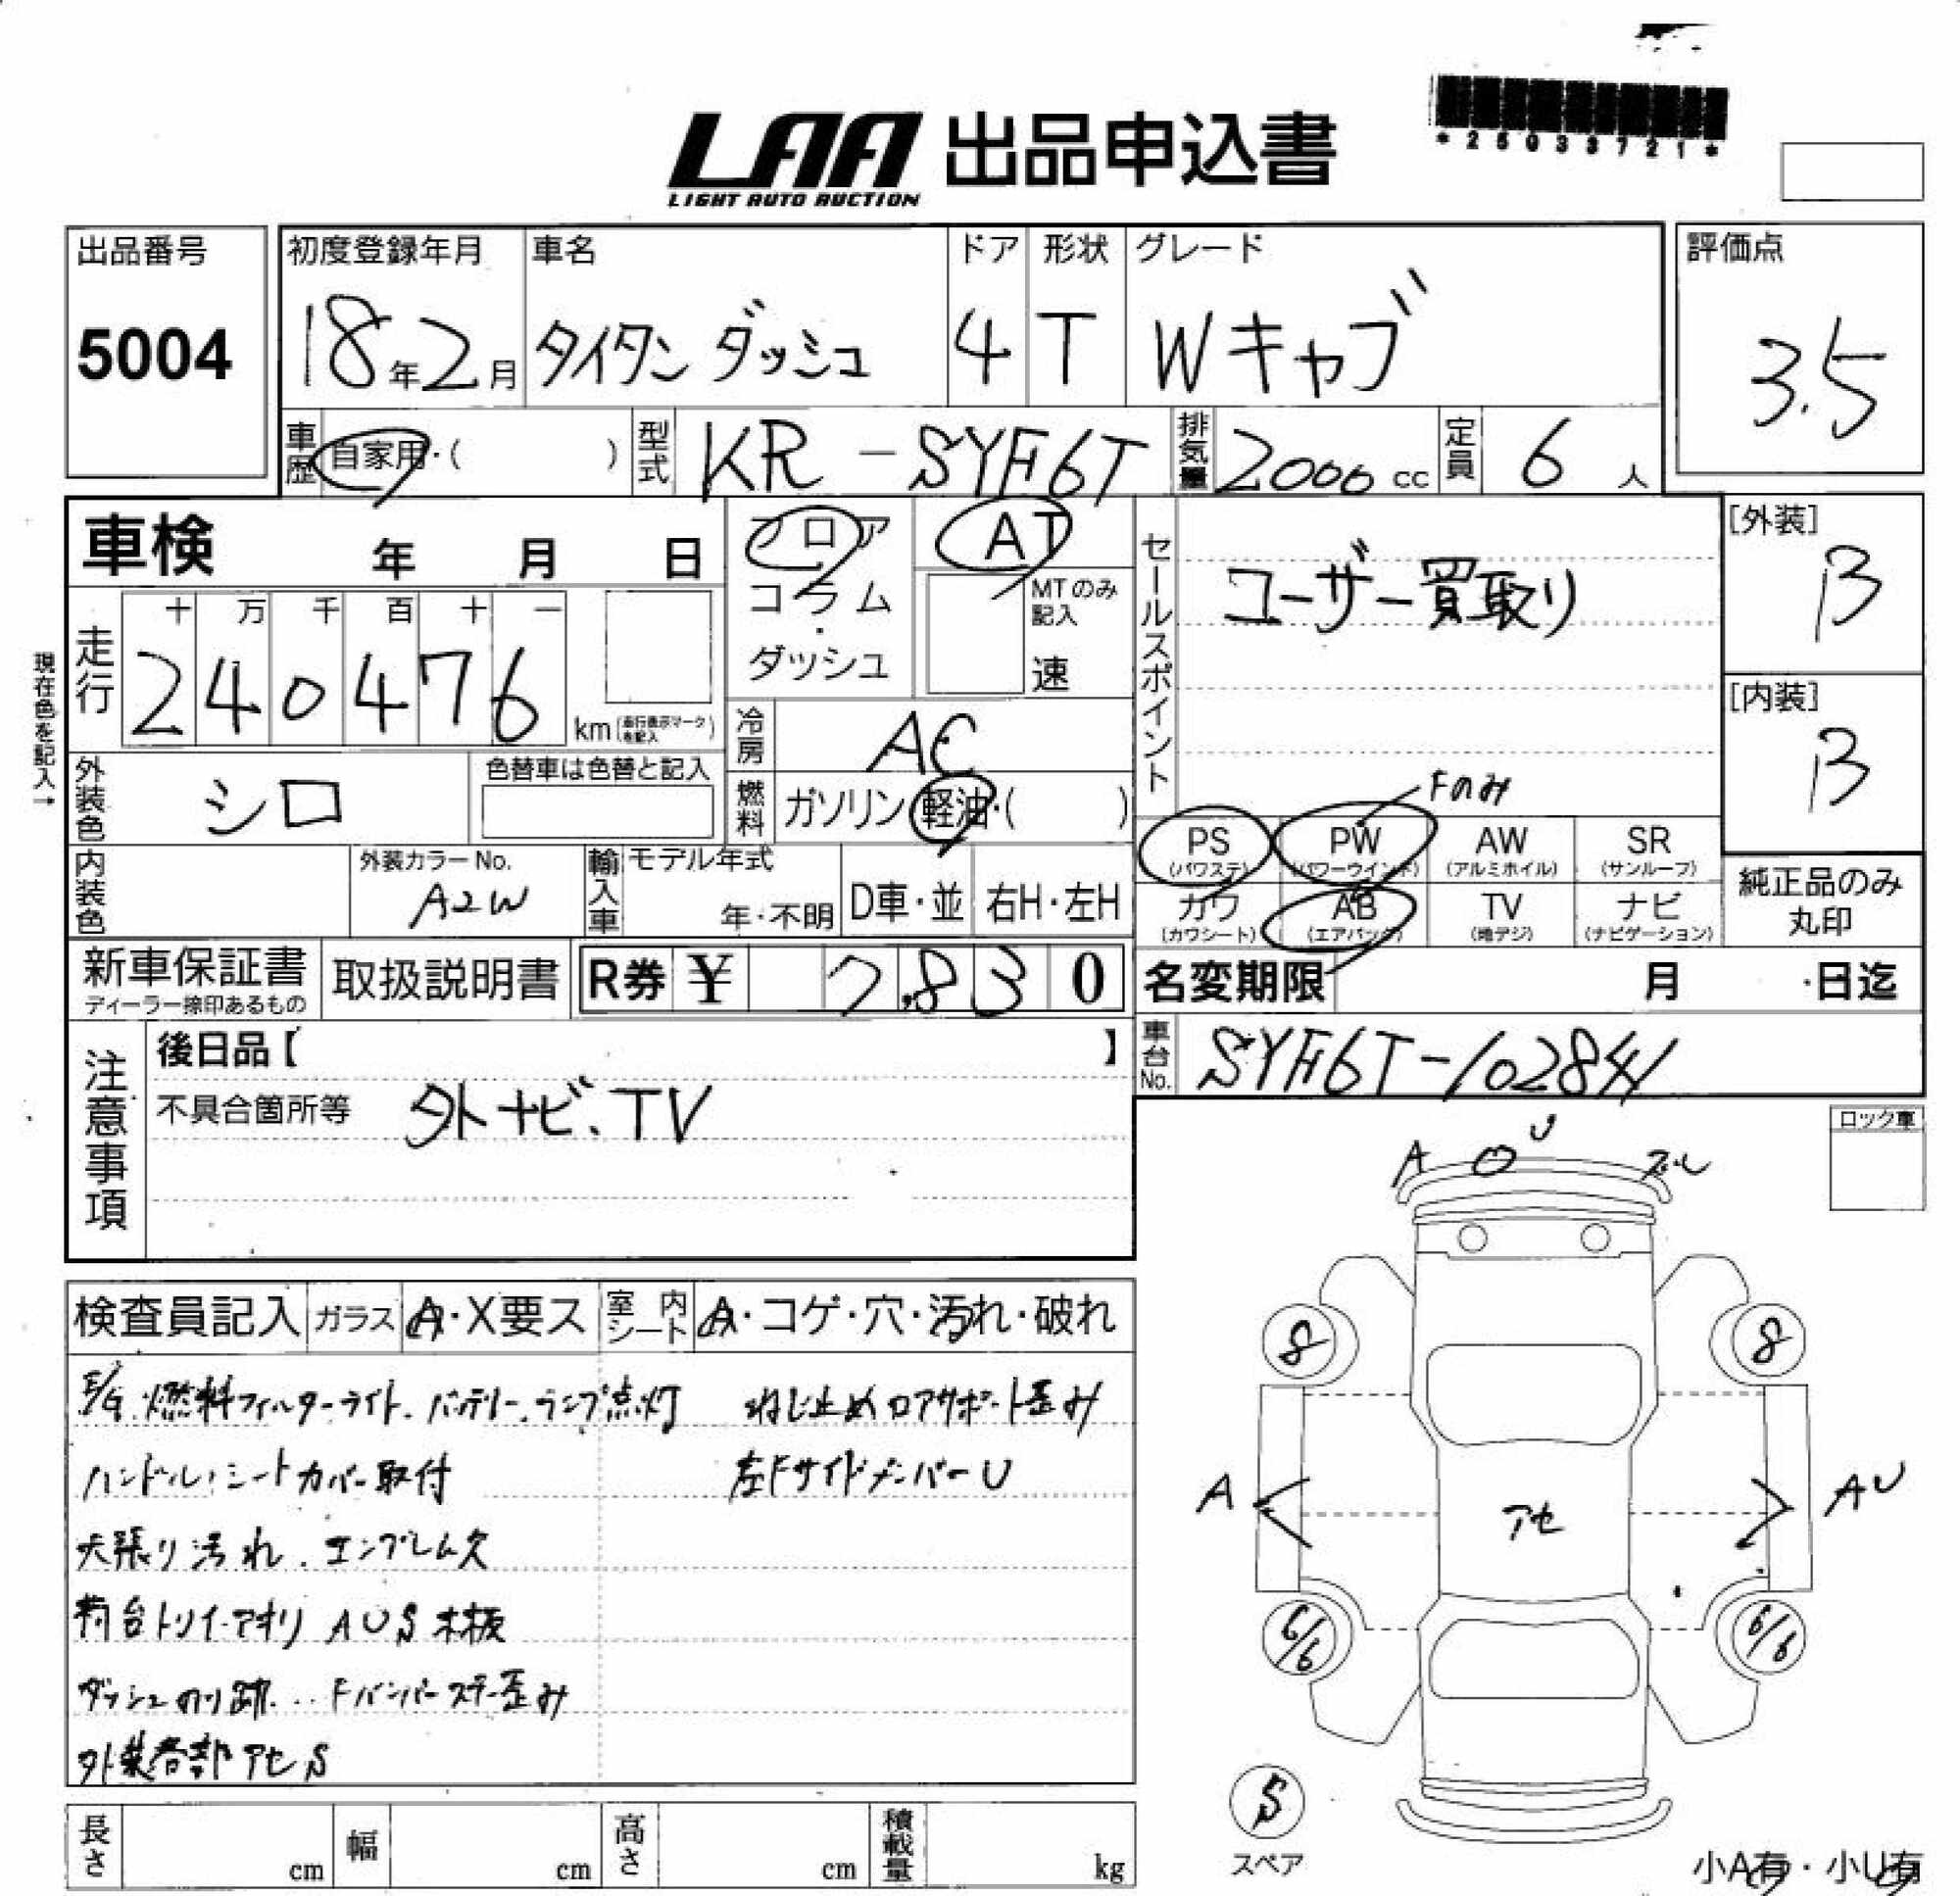 LAA 出品申込書
LIGHT AUTO AUCTION
*25033721*
出品番号
5004
初度登録年月
18年2月
車名
タイタン ダッシュ
ドア
4
形状
T
グレード
Wキャブ
評価点
3.5
車歴 自家用・( )
型式 KR-SYF6T
排気量 2000 cc
定員 6 人
車検 年 月 日
フロア
コラム
・
ダッシュ
AT
MTのみ
記入
速
セールスポイント
ユーザー買取り
[外装]
B
[内装]
B
現在色を記入→
走行
十 万 千 百 十 一
2 4 0 4 7 6
km (走行表示マークを記入)
冷房 AC
外装色 シロ
色替車は色替と記入
燃料 ガソリン・軽油・( )
Fのみ
PS (パワステ)
PW (パワーウインド)
AW (アルミホイル)
SR (サンルーフ)
内装色
外装カラーNo.
A2W
輸入車
モデル年式
年・不明
D車・並
右H・左H
カワ (カワシート)
AB (エアバッグ)
TV (地デジ)
ナビ (ナビゲーション)
純正品のみ
丸印
新車保証書
ディーラー捺印あるもの
取扱説明書
R券 ¥ 7,830
名変期限 月 日迄
注意事項
後日品【 】
車台No. SYF6T-102841
不具合箇所等 外ナビ、TV
ロック車
A U
検査員記入
ガラス A・X要ス
室内シート A・コゲ・穴・汚れ・破れ
E/G.燃料フィルターライト.バッテリー.ランプ点灯
ねじ止めコアサポート歪み
ハンドル,シートカバー取付
左FサイドメンバーU
天張り汚れ.エンブレム欠
荷台トリイ・アオリ AUS木板
ダッシュのり跡...Fバンパーステー歪み
外装各部アセS
8 8
A アセ AU
6/6 6/6
S
スペア
長さ cm
幅 cm
高さ cm
積載量 kg
小A有・小U有